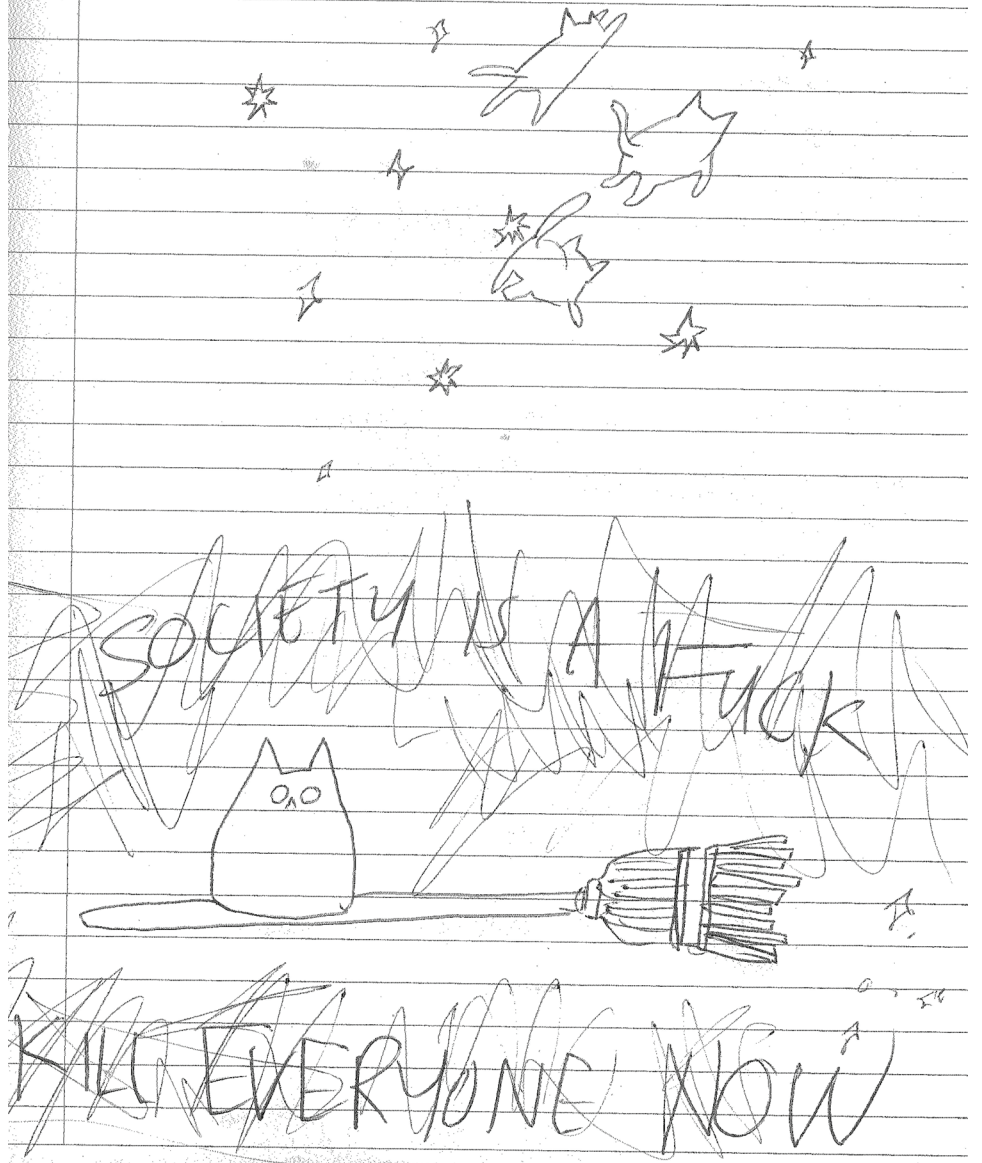 SOCIETY IS A FUCK
KILL EVERYONE NOW